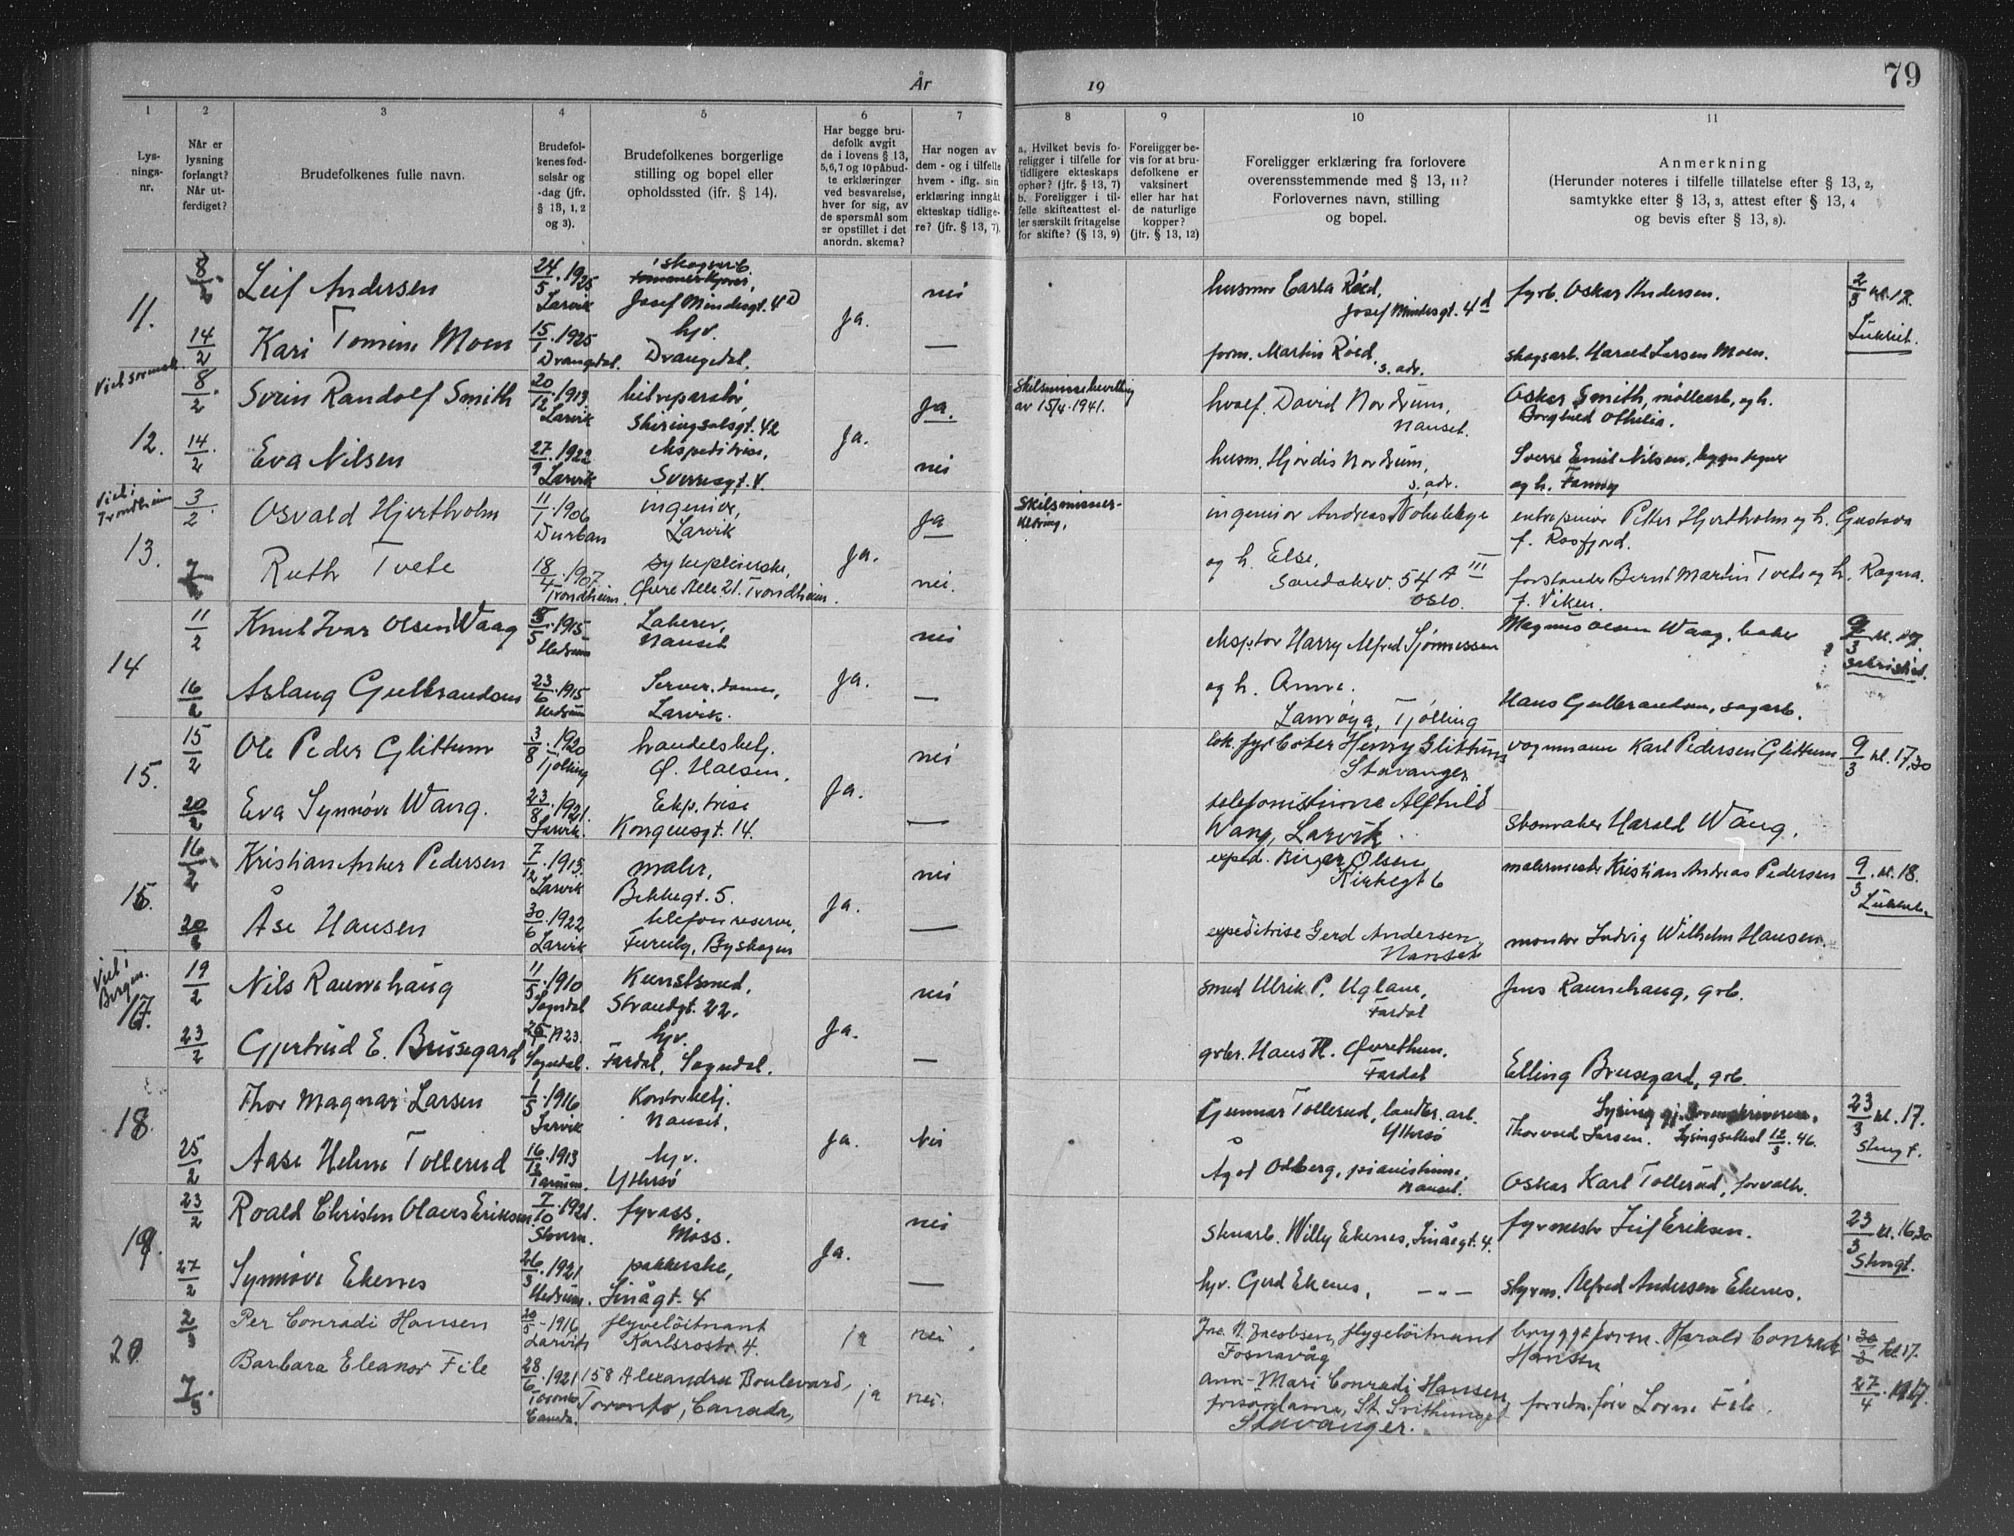 79
År
19
1
2
3
4
5
6
7
8
9
10
11
Lys-
nings-
nr.
Når er
lysning
forlangt?
Når ut-
ferdiget?
Brudefolkenes fulle navn.
Brudefol-
kenes fød-
selsår og
-dag (jfr.
§ 13, 1, 2
og 3).
Brudefolkenes borgerlige
stilling og bopel eller
opholdssted (ifr. § 14).
Har begge bru-
defolk avgit
de i lovens § 13,
5,6,7 og 10 påbud-
te erklæringer
ved besvarelse,
hver for sig, av
de spørsmål som
er opstillet i det
anordn. skema?
Har nogen av
dem - og i tilfelle
hvem - iflg. sin
erklæring inngåt
ekteskap tidlige-
re? (jfr. § 13, 7).
a. Hvilket bevis fo-
religger i tilfelle for
tidligere ekteskaps
ophør? (jfr. § 13, 7)
b. Foreligger i til-
felle skifteattest el-
ler særskilt fritagelse
for skifte? (§ 13, 9)
Foreligger be-
vis for at bru-
defolkene er
vaksinert
eller har hat
de naturlige
kopper?
(jfr. § 13, 12)
Foreligger erklæring fra forlovere
overensstemmende med § 13, 11?
Forlovernes navn, stilling
og bopel.
Anmerkning
(Herunder noteres i tilfelle tillatelse efter § 13, 2,
samtykke efter § 13, 3, attest efter § 13, 4
og bevis efter § 13, 8).
11. 8/2 Leif Andersen 24/5 1925 Larvik skogarb. Josef Mindesgt. 4D Ja. nei husmor Carla Röed, Josef Mindesgt. 4d fyrb. Oskar Andersen. 2/3 kl. 17.
14/2 Kari Tomine Moen 15/1 1925 Drangedal. hjv. Drangedal. — form. Martin Röed. s. adr. skogsarb. Harald Larsen Moen.
12. 8/2 Svein Randolf Smith 20/12 1913 Larvik bilreparatör, Skiringsalsgt. 42 Ja. Ja. Skilsmissebevilling av 15/4. 1941. hvalf. David Nordrum, Nanset. Oskar Smith, möllearb., og h. Borghild Othilia.
14/2 Eva Nilsen 27/9 1922 Larvik ekspeditrise, Sverresgt. 4. nei husm. Hjördis Nordrum, s. adr. Sverre Emil Nilsen, og h. Fanny
Viet i Trondheim
13. 3/2 Osvald Hjertholm 11/1 1906 Durban ingeniör, Larvik Ja. Ja ingeniör Andreas entreprenör Peter Hjertholm og h. Gustava f. Rosfjord.
7/2 Ruth Tvete 18/4 1907 Trondheim. sykepleierske, Øvre Alle 21. Trondheim. nei. og h. Else, Sandakerv. 54 A III Oslo. forstander Bernt Martin Tvete og h. Ragna f. Viken.
14 11/2 Knut Ivar Olsen Waag 5 1915 Hedrum Nanset Ja. nei eksp.tør Harry Alfred Sjønnessen Magnus Olsen Waag, baker
16/2 Aslaug Gulbrandsen 23/6 1915 Hedrum Server.dame, Larvik. — og h. Anna. Lamøya, Tjølling Hans Gulbrandsen, sagarb.
15. 15/2 Ole Peder Glittum 3/8 1920 Tjölling handelsbetj. Ø. Halsen. Ja. nei lok. fyrbøter Henry Glittum Stavanger vognmann Karl Pedersen Glittum 9/3 kl. 17,30
20/2 Eva Synnöve Wang. 23/8 1921. Larvik. Eksp.trise Kongensgt. 14. — telefonistinne Alfhild Wang, Larvik. Harald Wang.
16. 16/2 Kristian Anker Pedersen 7/12 1915. Larvik maler, Bekkegt. 5. Ja. nei exped. Birger Olsen Kirkegt 6 malermester Kristian Andreas Pedersen 9/3 kl. 18.
20/2 Åse Hansen 30/6 1922 Larvik telefonreserve, Furuly, Byskogen — expeditrise Gerd Andersen Nanset montør Ludvig Wilhelm Hansen.
Viet i Bergen.
17. 19/2 Nils Raunehaug 11/5 1910 Sogndal Kunstsmed, Strandgt. 22. Ja. nei smed Ulrik P. Uglane, Fardal Jens Raunehaug, grb.
23/2 Gjertrud E. Brusegard 1923. Sogndal. hjv. Fardal, Sogndal. — grbr. Hans H. Øvrethun. Fardal Elling Brusegard, grb.
18. Thor Magnar Larsen 1/5 1916 Larvik Kontorbetj. Nanset. Ja. Nei Gunnar Tollerud, landbr. arb. Ytersø Thorvald Larsen. Lysingsattest 12/3. 46. 23/3 kl. 17.
25/2 Aase Helene Tollerud 16/12 1913 hjv. Ytersø Ågot Odberg, pianistinne, Nanset. Oskar Karl Tollerud, forvalter.
19. 23/2 Roald Christen Olaves Eriksen 7/10 1921. fyrass. Moss. Ja. nei Stenarb. Willy Ekenes, Linågt. 4. fyrmester Leif Eriksen. 23/3 kl. 16,30 Stengt.
27/2 Synnöve Ekenes 26/3 1921 Hedrum. pakkerske, Linågt. 4 — hjv. Gerd Ekenes, — „ — styrm. Alfred Andersen Ekenes.
20. 2/3 Per Conradi Hansen 20/5 - 1916 Larvik flyveløitnant Karlsrostr. 4. ja nei Jac. N. Jacobsen, flygeløitnant Fosnavåg bryggeform. Harald Conradi Hansen 30/3 kl 17.
7/3 Barbara Eleanor File 28/6 1921 Toronto Canada. 158 Alexandra Boulevard, Toronto, Canada, ja nei. Ann-Mari Conradi Hansen frisørdame, St. Svithunsgt Stavanger. forretn.fører Lorne File. 27/4